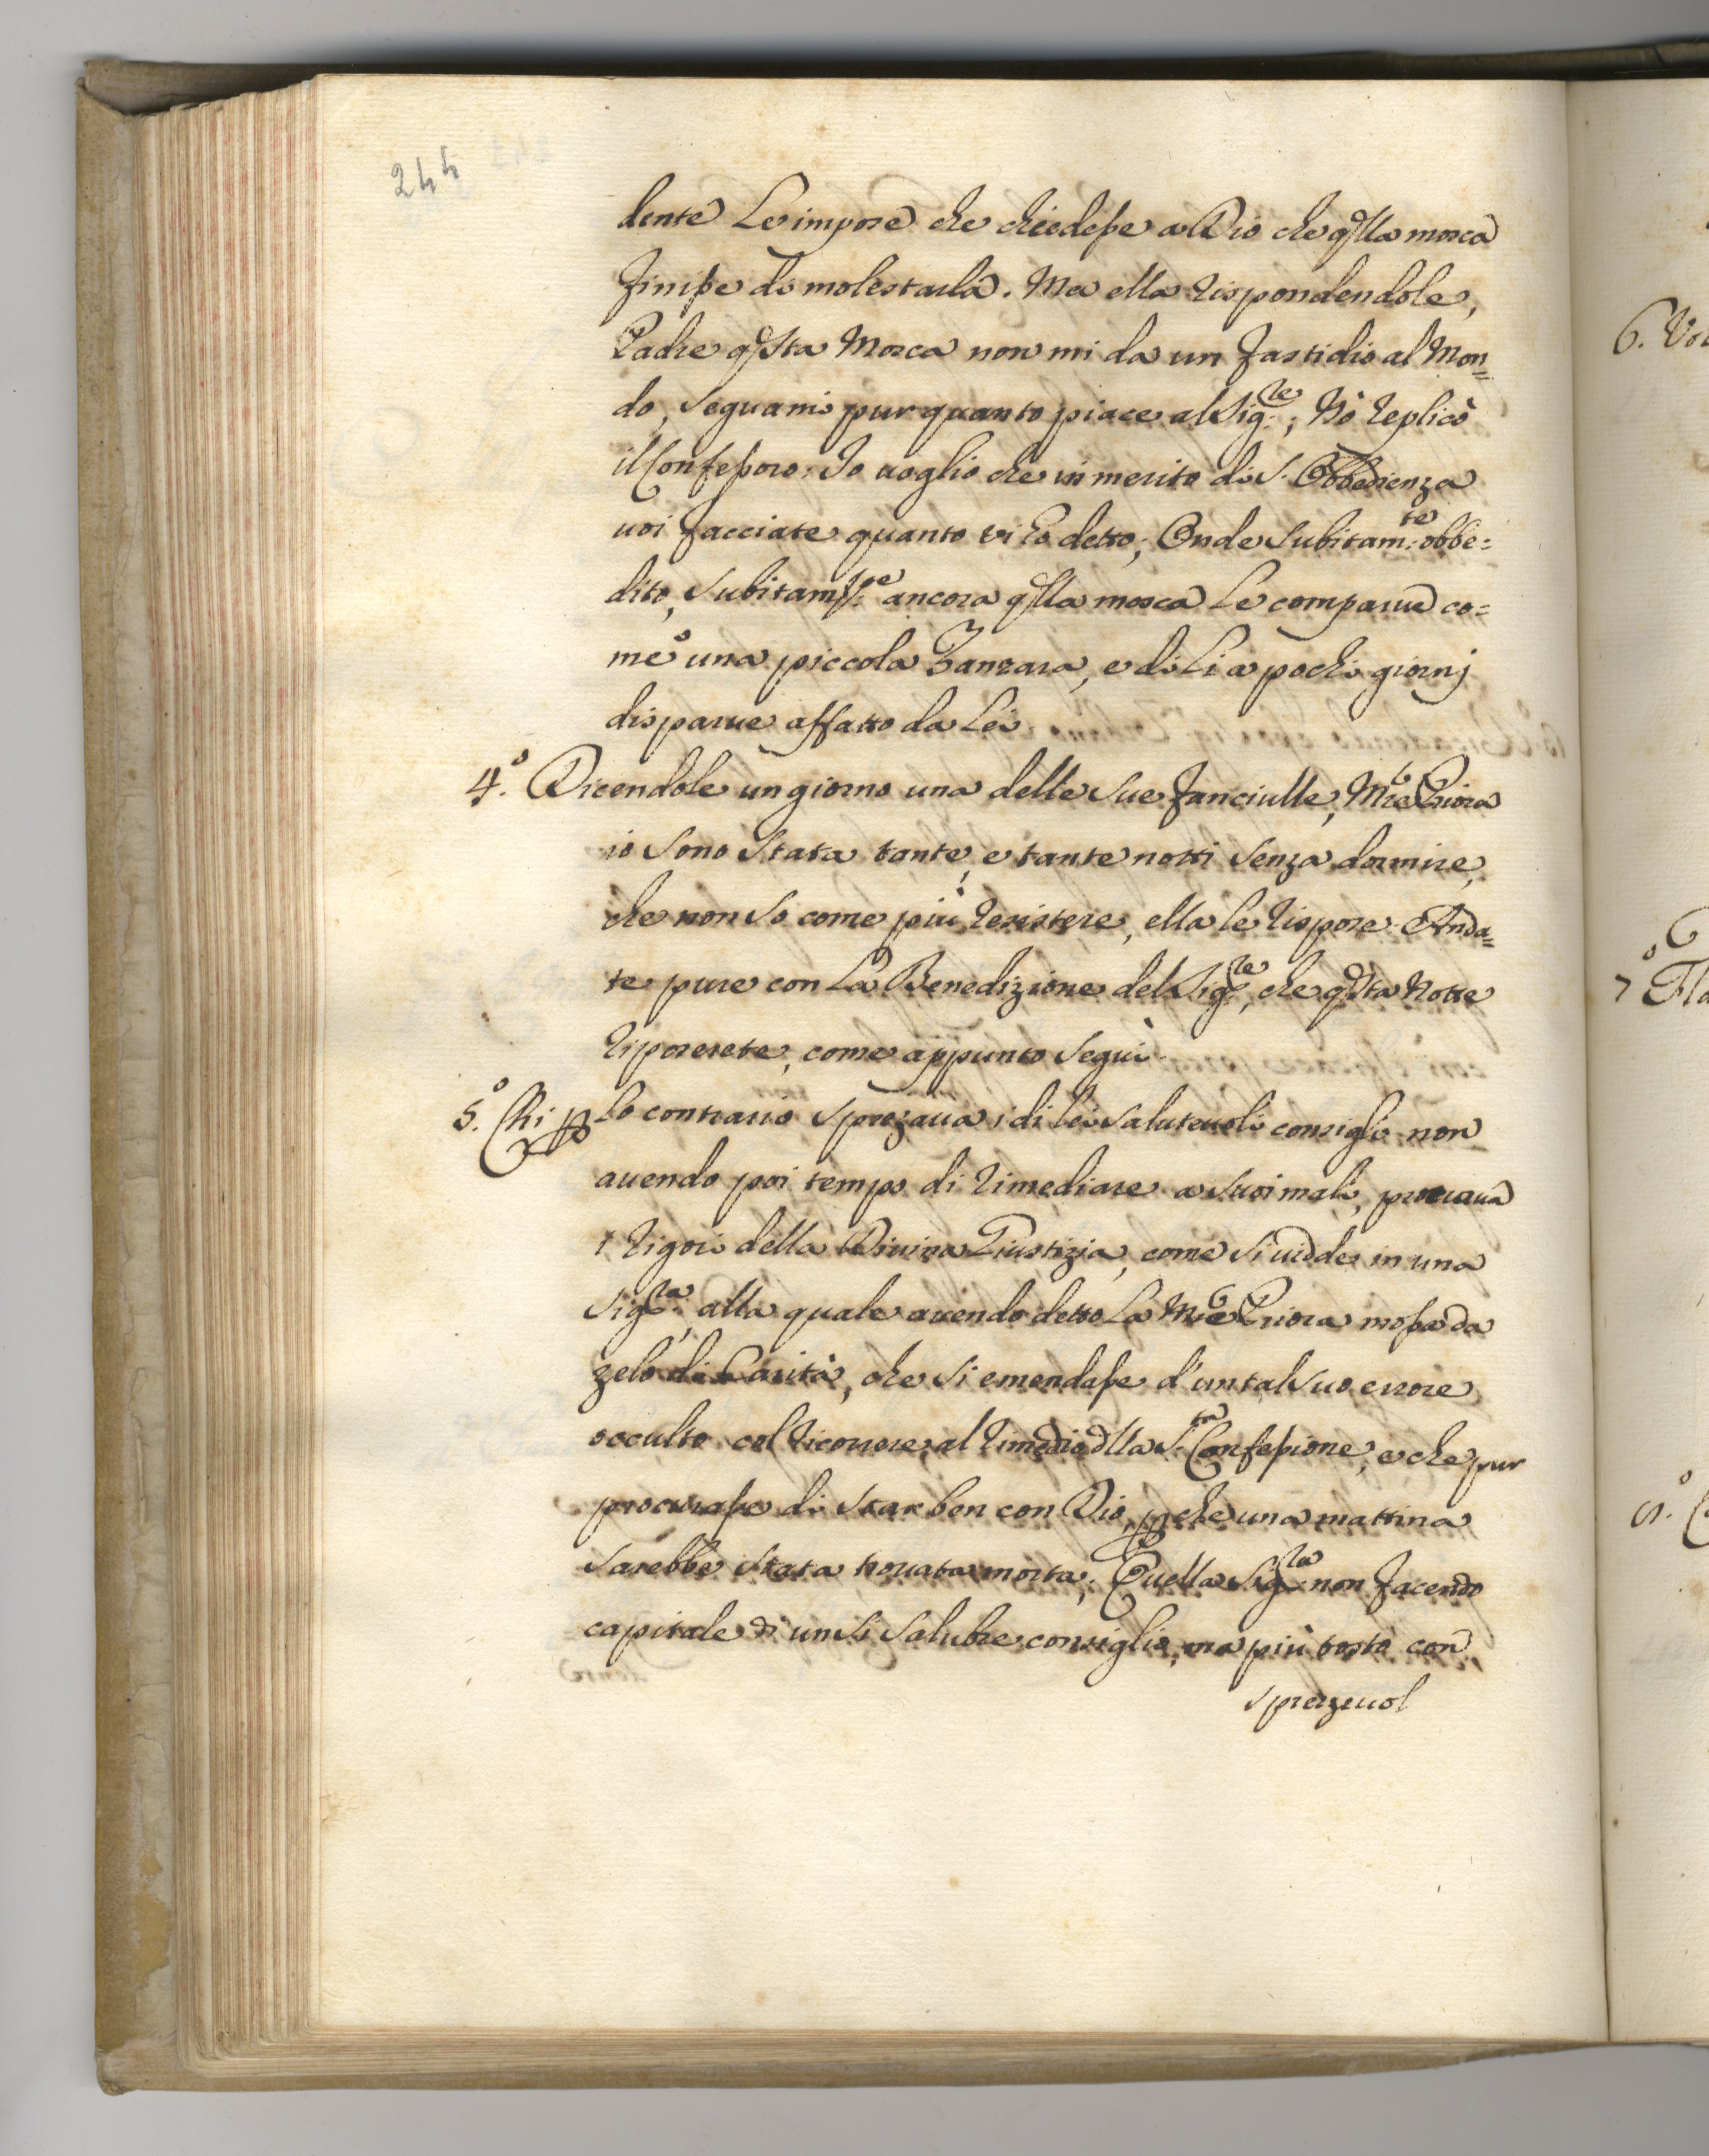 244
dente Le impose che chiedesse a Dio che qlla mosca
finisse di molestarla. Ma ella rispondendole,
Padre qsta Mosca non mi da un fastidio al Mon=
do, seguami pur quanto piace al Sig:re; Nò replicò
il Confessoro: Io uoglio che in merito di S. Obbedienza
uoi facciate quanto vi hò detto; Onde subitam:te obbe=
dito, subitam:te ancora qlla mosca Le comparue co=
me una piccola Zanzara, e di Li a pochi giornj
disparue affatto da Lei
4.º Dicendole un giorno una delle sue fanciulle, Mre Priora
io sono stata tante, e tante notti senza dormire,
che non so come più resistere, ella le rispose. Anda=
te pure con La Benedizione del Sig:re, che qsta Notte
riposerete, come appunto seguì.
5.º Chi p lo contrario sprezaua i di lei saluteuoli consigli non
auendo poi tempo di rimediare a suoi mali, prouaua
i rigori della Diuina Giustizia, come si uidde in una
Sig:ra, alla quale auendo detto La Mre Priora mossa da
zelo di Carità, che si emendasse d'un tal suo errore
occulto col ricorrere al rimedio dlla S:ta Confessione, e che pur
procurasse di star ben con Dio, pche una mattina
sarebbe stata trouata morta; Quella Sig:ra non facendo
capitale di un si salubre consiglio, ma più tosto con
sprezeuol
6. Vol
7º Fla